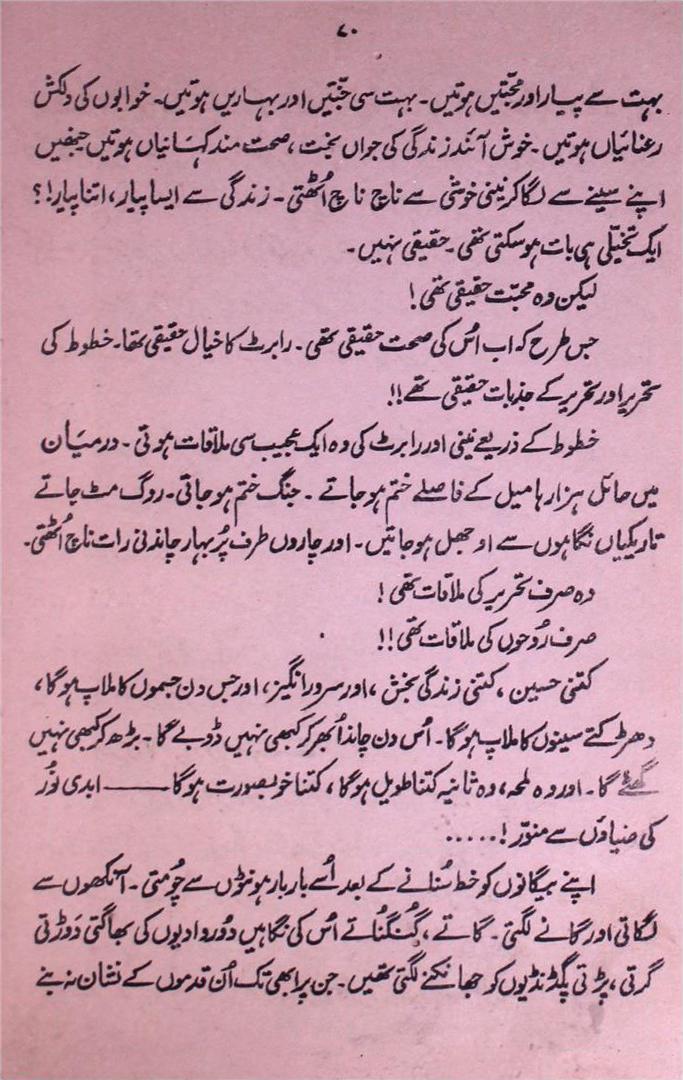 ۷۰
بہت سے پیار اور محبتیں ہوتیں۔ بہت سی جنتیں اور بہاریں ہوتیں۔ خوابوں کی دلکش
رعنائیاں ہوتیں۔ خوش آئند زندگی کی جواں بخت، صحت مند کہانیاں ہوتیں جنھیں
اپنے سینے سے لگا کر نینی خوشی سے ناچ ناچ اُٹھتی۔ زندگی سے ایسا پیار، اتنا پیار!؟
ایک تخیّلی ہی بات ہو سکتی تھی۔ حقیقی نہیں۔
لیکن وہ محبّت حقیقی تھی!
جس طرح کہ اب اُس کی صحت حقیقی تھی۔ رابرٹ کا خیال حقیقی تھا۔ خطوط کی
تحریر اور تحریر کے جذبات حقیقی تھے!!
خطوط کے ذریعے نینی اور رابرٹ کی وہ ایک عجیب سی ملاقات ہوتی۔ درمیان
میں حائل ہزار ہا میل کے فاصلے ختم ہو جاتے۔ جنگ ختم ہو جاتی۔ روگ مٹ جاتے
تاریکیاں نگاہوں سے اوجھل ہو جاتیں۔ اور چاروں طرف پُر بہار چاندنی رات ناچ اُٹھتی۔
وہ صرف تحریر کی ملاقات تھی!
صرف رُوحوں کی ملاقات تھی!!
کتنی حسین، کتنی زندگی بخش، اور سرور انگیز، اور جس دن جسموں کا ملاپ ہو گا،
دھڑکتے سینوں کا ملاپ ہو گا۔ اُس دن چاند اُبھر کر کبھی نہیں ڈوبے گا۔ بڑھ کر کبھی نہیں
گھٹے گا۔ اور وہ لمحہ، وہ ثانیہ کتنا طویل ہو گا، کتنا خوبصورت ہو گا——ابدی نُور
کی ضیاؤں سے منوّر!.....
اپنے بیگانوں کو خط سُنانے کے بعد اُسے بار بار ہونٹوں سے چُومتی۔ آنکھوں سے
لگاتی اور گانے لگتی۔ گاتے، گُنگُناتے اُس کی نگاہیں دُور وادیوں کی بھاگتی دَوڑتی
گرتی، پڑتی پگڈنڈیوں کو جھانکنے لگتی تھیں۔ جن پر ابھی تک اُن قدموں کے نشان نہ بنے